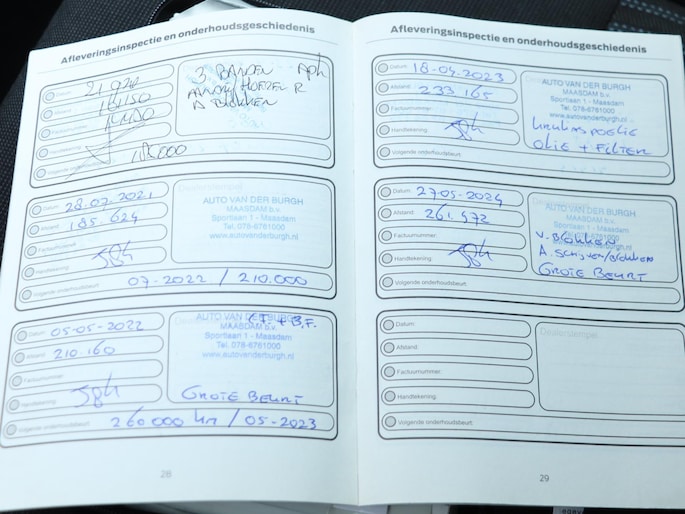 Afleveringsinspectie en onderhoudsgeschiedenis
3 BANDEN
Datum:
Afstand:
Factuurnummer:
Handtekening:
Volgende onderhoudsbeurt:
Datum: 28.07.2021
AUTO VAN DER BURGH
MAASDAM b.v.
Sportlaan 1 - Maasdam
Tel. 078-6761000
www.autovanderburgh.nl
Afstand: 185.624
Factuurnummer:
Handtekening:
Volgende onderhoudsbeurt: 07-2022 / 210.000
Datum: 05-05-2022
AUTO VAN DER BURGH
MAASDAM b.v.
Sportlaan 1 - Maasdam
Tel. 078-6761000
www.autovanderburgh.nl
Afstand: 210.160
Factuurnummer:
Handtekening:
GROTE BEURT
Volgende onderhoudsbeurt: 260000 km / 05-2023
28
Afleveringsinspectie en onderhoudsgeschiedenis
Datum: 18-04-2023
AUTO VAN DER BURGH
MAASDAM b.v.
Sportlaan 1 - Maasdam
Tel. 078-6761000
www.autovanderburgh.nl
Afstand: 233 165
Factuurnummer:
Handtekening:
OLIE + FILTER
Volgende onderhoudsbeurt:
Datum: 27-05-2024
AUTO VAN DER BURGH
MAASDAM b.v.
Sportlaan 1 - Maasdam
Tel. 078-6761000
Afstand: 261.972
Factuurnummer:
V. BLOKKEN
Handtekening:
GROTE BEURT
Volgende onderhoudsbeurt:
Datum:
Dealerstempel:
Afstand:
Factuurnummer:
Handtekening:
Volgende onderhoudsbeurt:
29